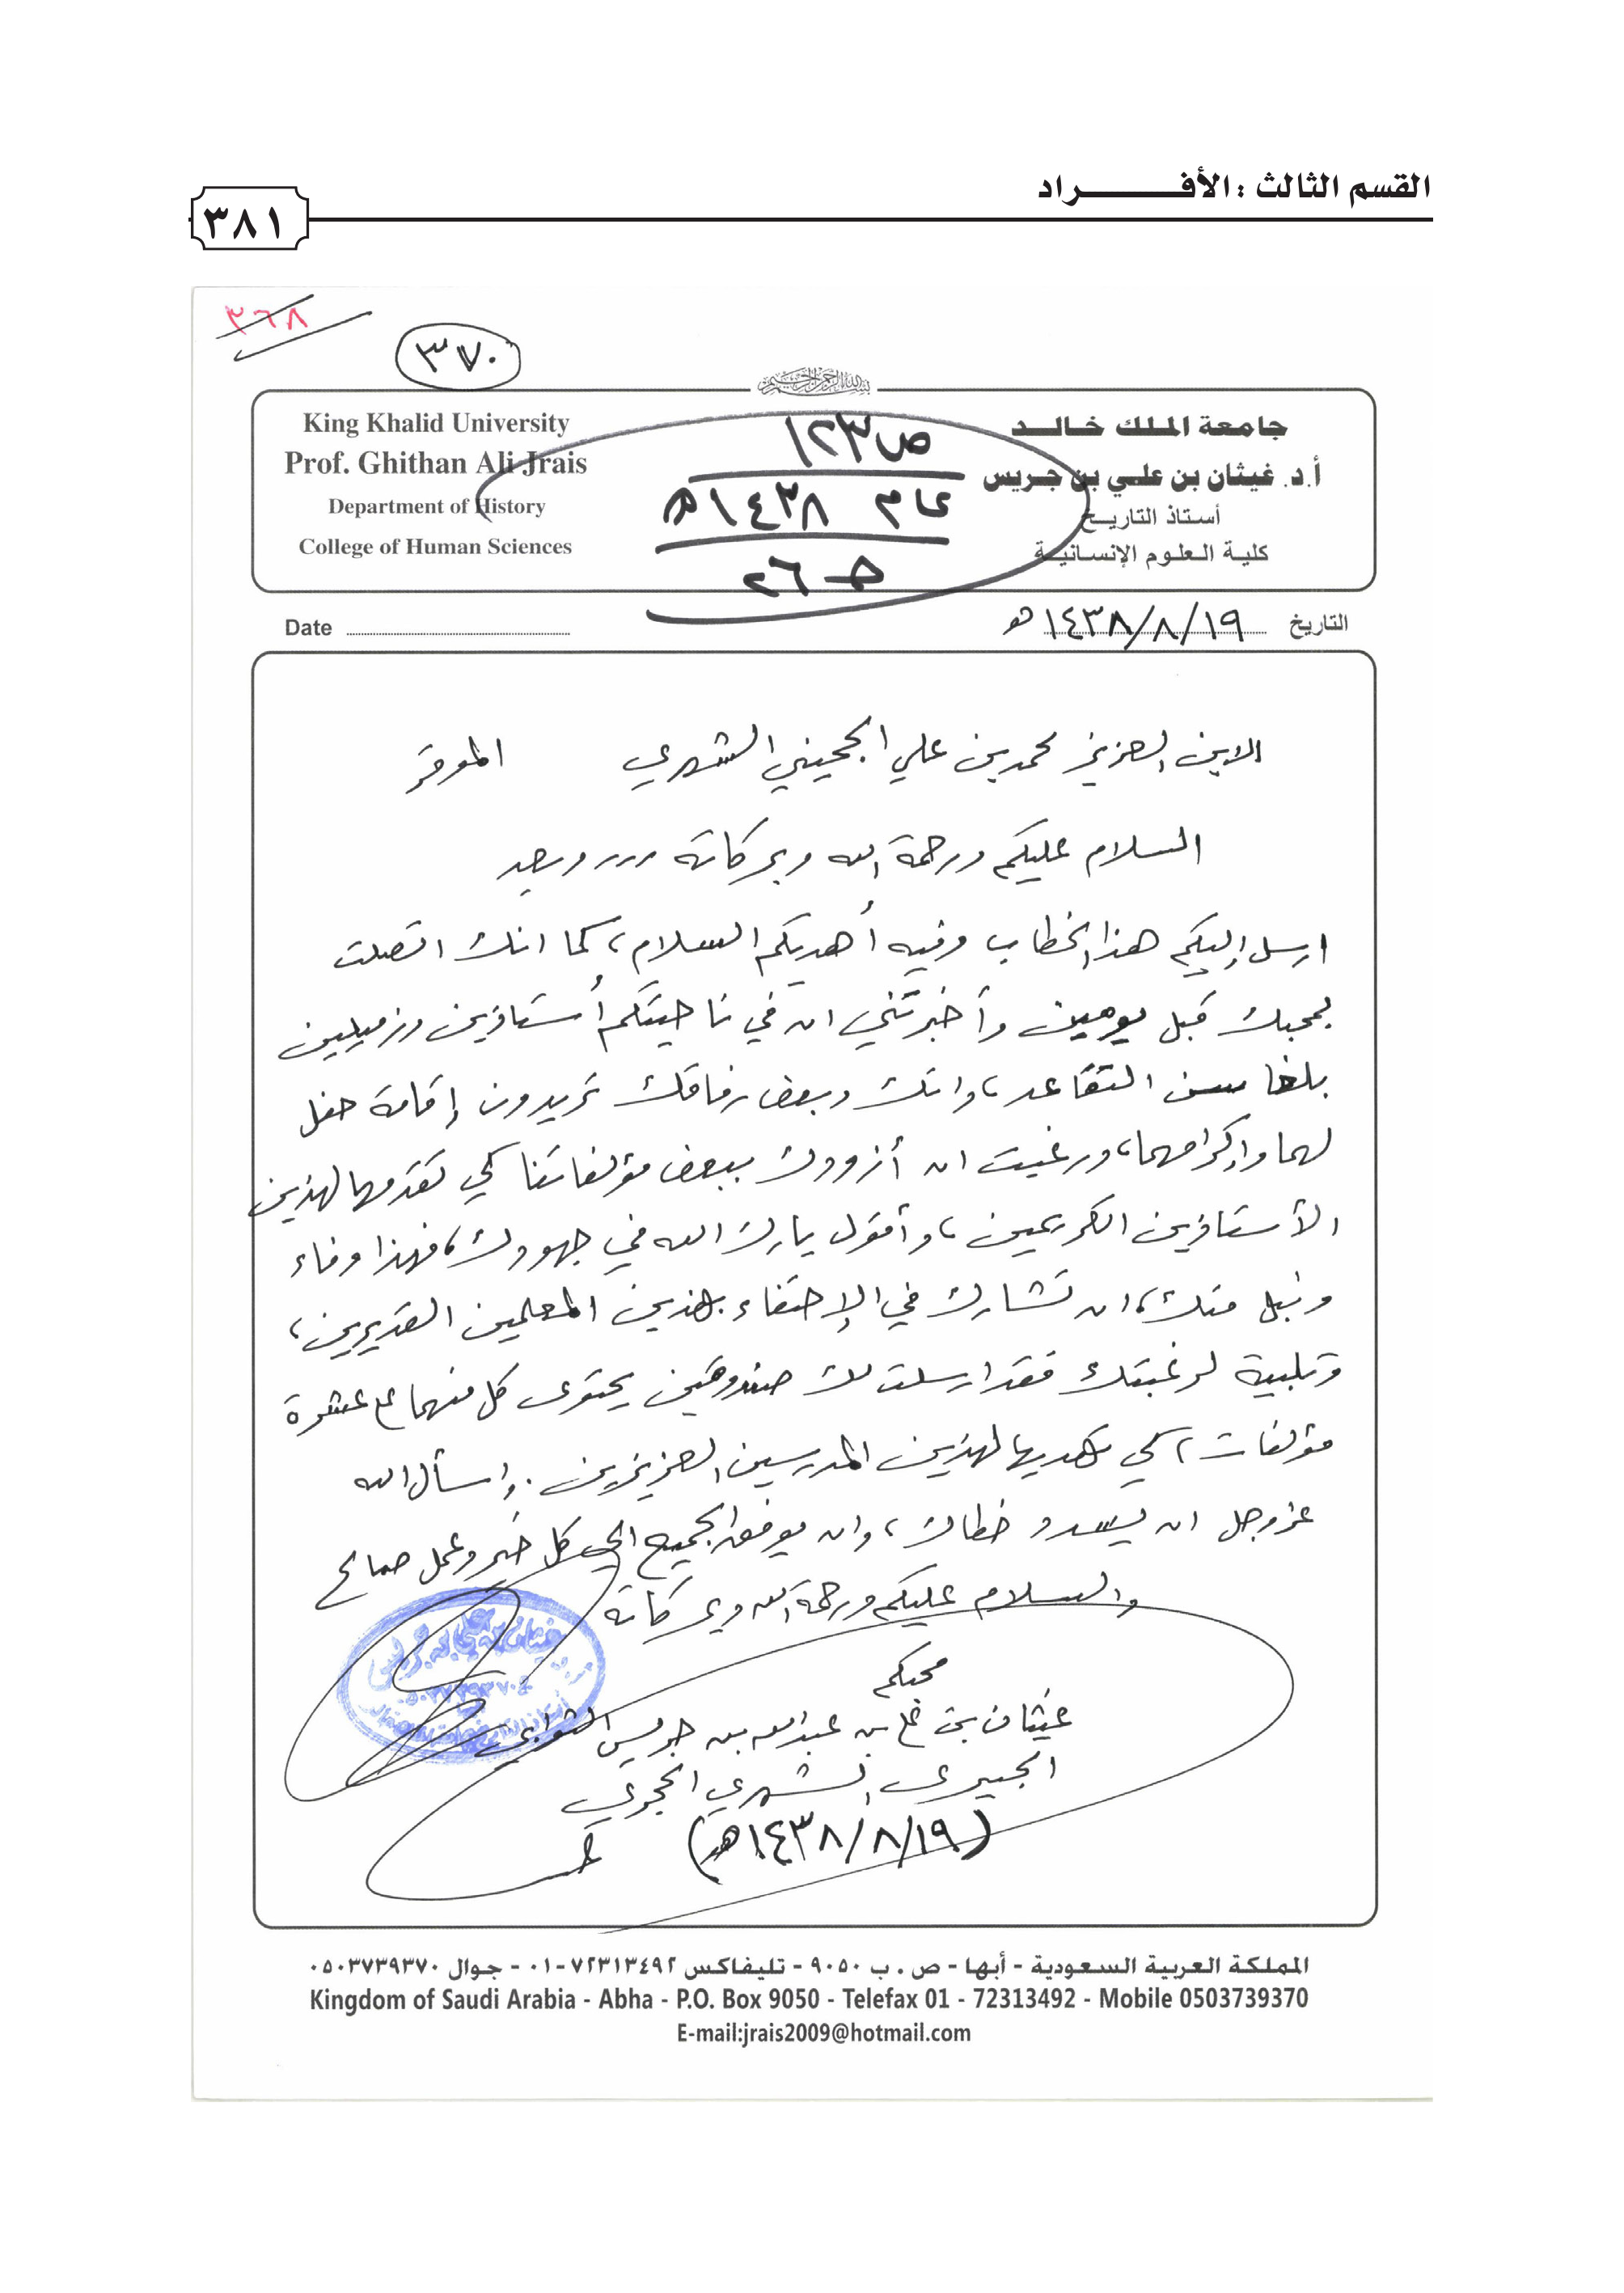 القسم الثالث : الأفـــــــراد
٣٨١
٣٦٨
٣٧٠
بسم الله الرحمن الرحيم
King Khalid University
Prof. Ghithan Ali Jrais
Department of History
College of Human Sciences
ص١٢٣
عام ١٤٣٨هـ
حـ ٢٦
جامعة الملك خالد
أ.د. غيثان بن علي بن جريس
أستاذ التاريخ
كلية العلوم الإنسانية
Date
التاريخ ١٤٣٨/٨/١٩هـ
الابن العزيز محمد بن علي الجحيني الشهري الموقر
السلام عليكم ورحمة الله وبركاته ,,,, وبعد
ارسل إليكم هذا الخطاب وفيه أهديكم السلام، كما انك اتصلت
بمحبك قبل يومين وأخبرتني ان في ناحيتكم أستاذين وزميلين
بلغا سن التقاعد، وانك وبعض رفاقك تريدون إقامة حفل
لهما وإكرامهما، ورغبت ان أزودك ببعض مؤلفاتنا كي تقدمها لهذين
الأستاذين الكريمين، وأقول بارك الله في جهودك، فهذا وفاء
ونبل منك، ان تشارك في الإحتفاء بهذين المعلمين القديرين،
وتلبية لرغبتك فقد ارسلت لك صندوقين يحتوى كل منهما ع عشرة
مؤلفات، كي تهديها لهذين المدرسين العزيزين. وأسأل الله
عز وجل ان يسدد خطاك، وان يوفق الجميع الى كل خير وعمل صالح
والسلام عليكم ورحمة الله وبركاته
محبكم
غيثان بن علي بن عبدالله بن جريس الثوابي
الجبيرى الشهري الحجري
(١٤٣٨/٨/١٩هـ)
المملكة العربية السعودية - أبها - ص . ب ٩٠٥٠ - تليفاكس ٧٢٣١٣٤٩٢-٠١ - جوال ٠٥٠٣٧٣٩٣٧٠
Kingdom of Saudi Arabia - Abha - P.O. Box 9050 - Telefax 01 - 72313492 - Mobile 0503739370
E-mail:jrais2009@hotmail.com